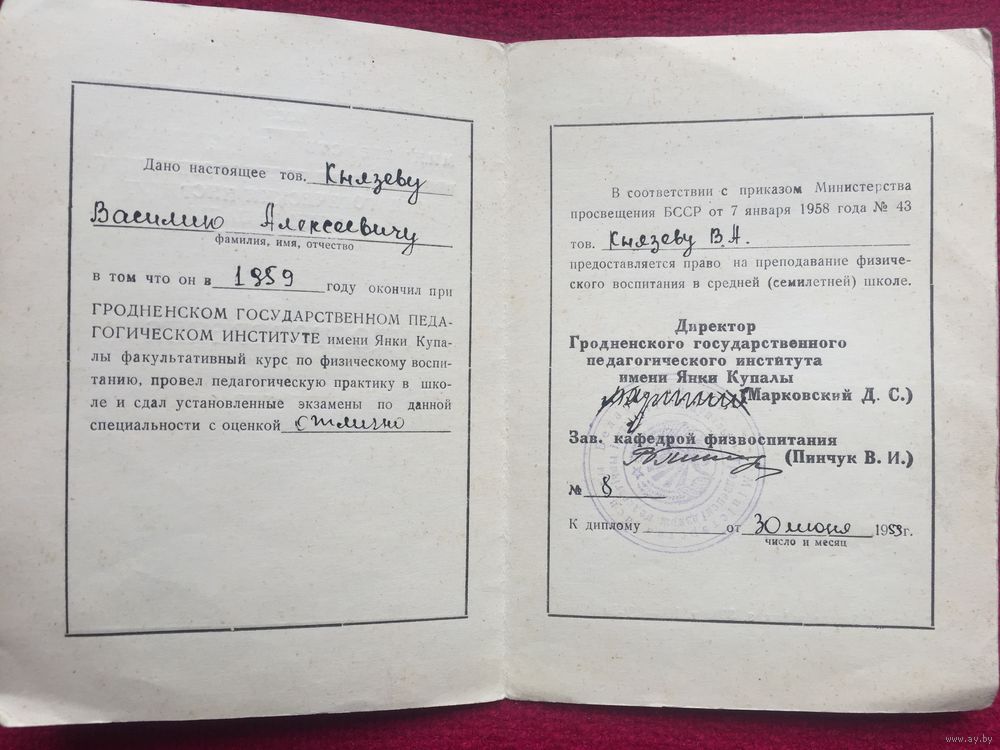 Дано настоящее тов. Князеву
Василию Алексеевичу
фамилия, имя, отчество
в том что он в 1959 году окончил при
ГРОДНЕНСКОМ ГОСУДАРСТВЕННОМ ПЕДА-
ГОГИЧЕСКОМ ИНСТИТУТЕ имени Янки Купа-
лы факультативный курс по физическому воспи-
танию, провел педагогическую практику в шко-
ле и сдал установленные экзамены по данной
специальности с оценкой отлично
В соответствии с приказом Министерства
просвещения БССР от 7 января 1958 года № 43
тов. Князеву В.А.
предоставляется право на преподавание физиче-
ского воспитания в средней (семилетней) школе.
Директор
Гродненского государственного
педагогического института
имени Янки Купалы
(Марковский Д. С.)
Зав. кафедрой физвоспитания
(Пинчук В. И.)
№ 8
К диплому от 30 июня 1959г.
число и месяц
www.ay.by